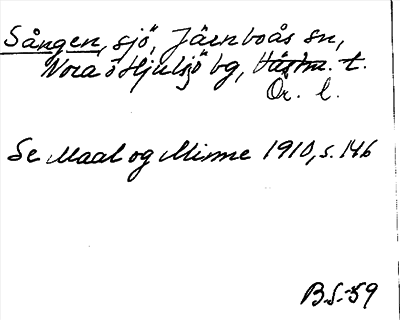 Sången, sjö, Järnboås sn,
Nora o Hjulsjö bg, Västm. t.
Ör. l.
Se Maal og Minne 1910, s. 146
B.S-59